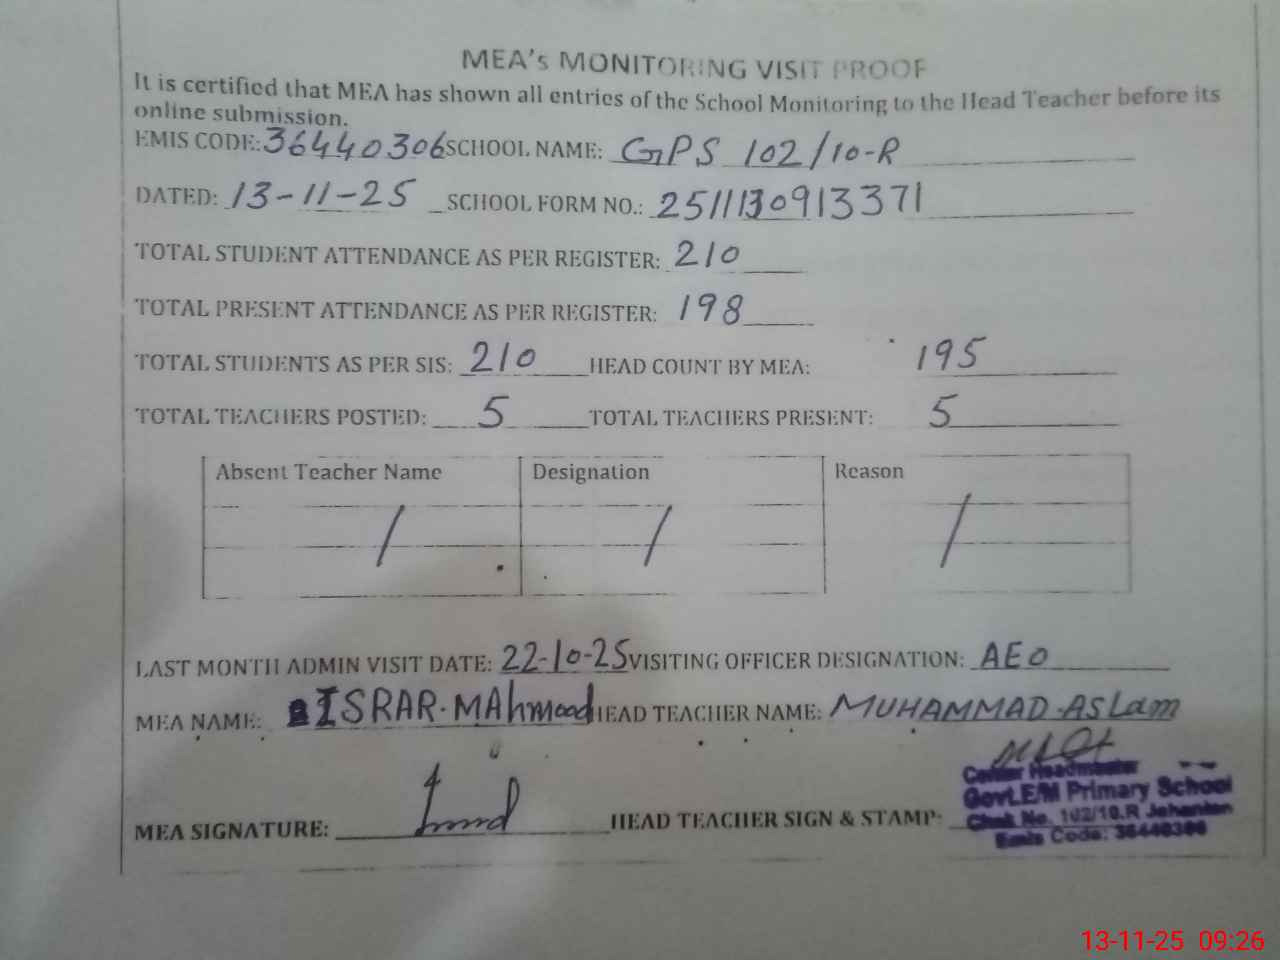 MEA's MONITORING VISIT PROOF
It is certified that MEA has shown all entries of the School Monitoring to the Head Teacher before its
online submission.
EMIS CODE: 36440306 SCHOOL NAME: GPS 102/10-R
DATED: 13-11-25 SCHOOL FORM NO.: 2511130913371
TOTAL STUDENT ATTENDANCE AS PER REGISTER: 210
TOTAL PRESENT ATTENDANCE AS PER REGISTER: 198
TOTAL STUDENTS AS PER SIS: 210 HEAD COUNT BY MEA: 195
TOTAL TEACHERS POSTED: 5 TOTAL TEACHERS PRESENT: 5
Absent Teacher Name Designation Reason
/ / /
LAST MONTH ADMIN VISIT DATE: 22-10-25 VISITING OFFICER DESIGNATION: AEO
MEA NAME: ISRAR.MAhmood HEAD TEACHER NAME: MUHAMMAD.ASLam
Center Headmaster
Govt.E/M Primary School
MEA SIGNATURE: HEAD TEACHER SIGN & STAMP:
Chak No. 102/10.R Jehanian
Emis Code: 36440306
13-11-25 09:26